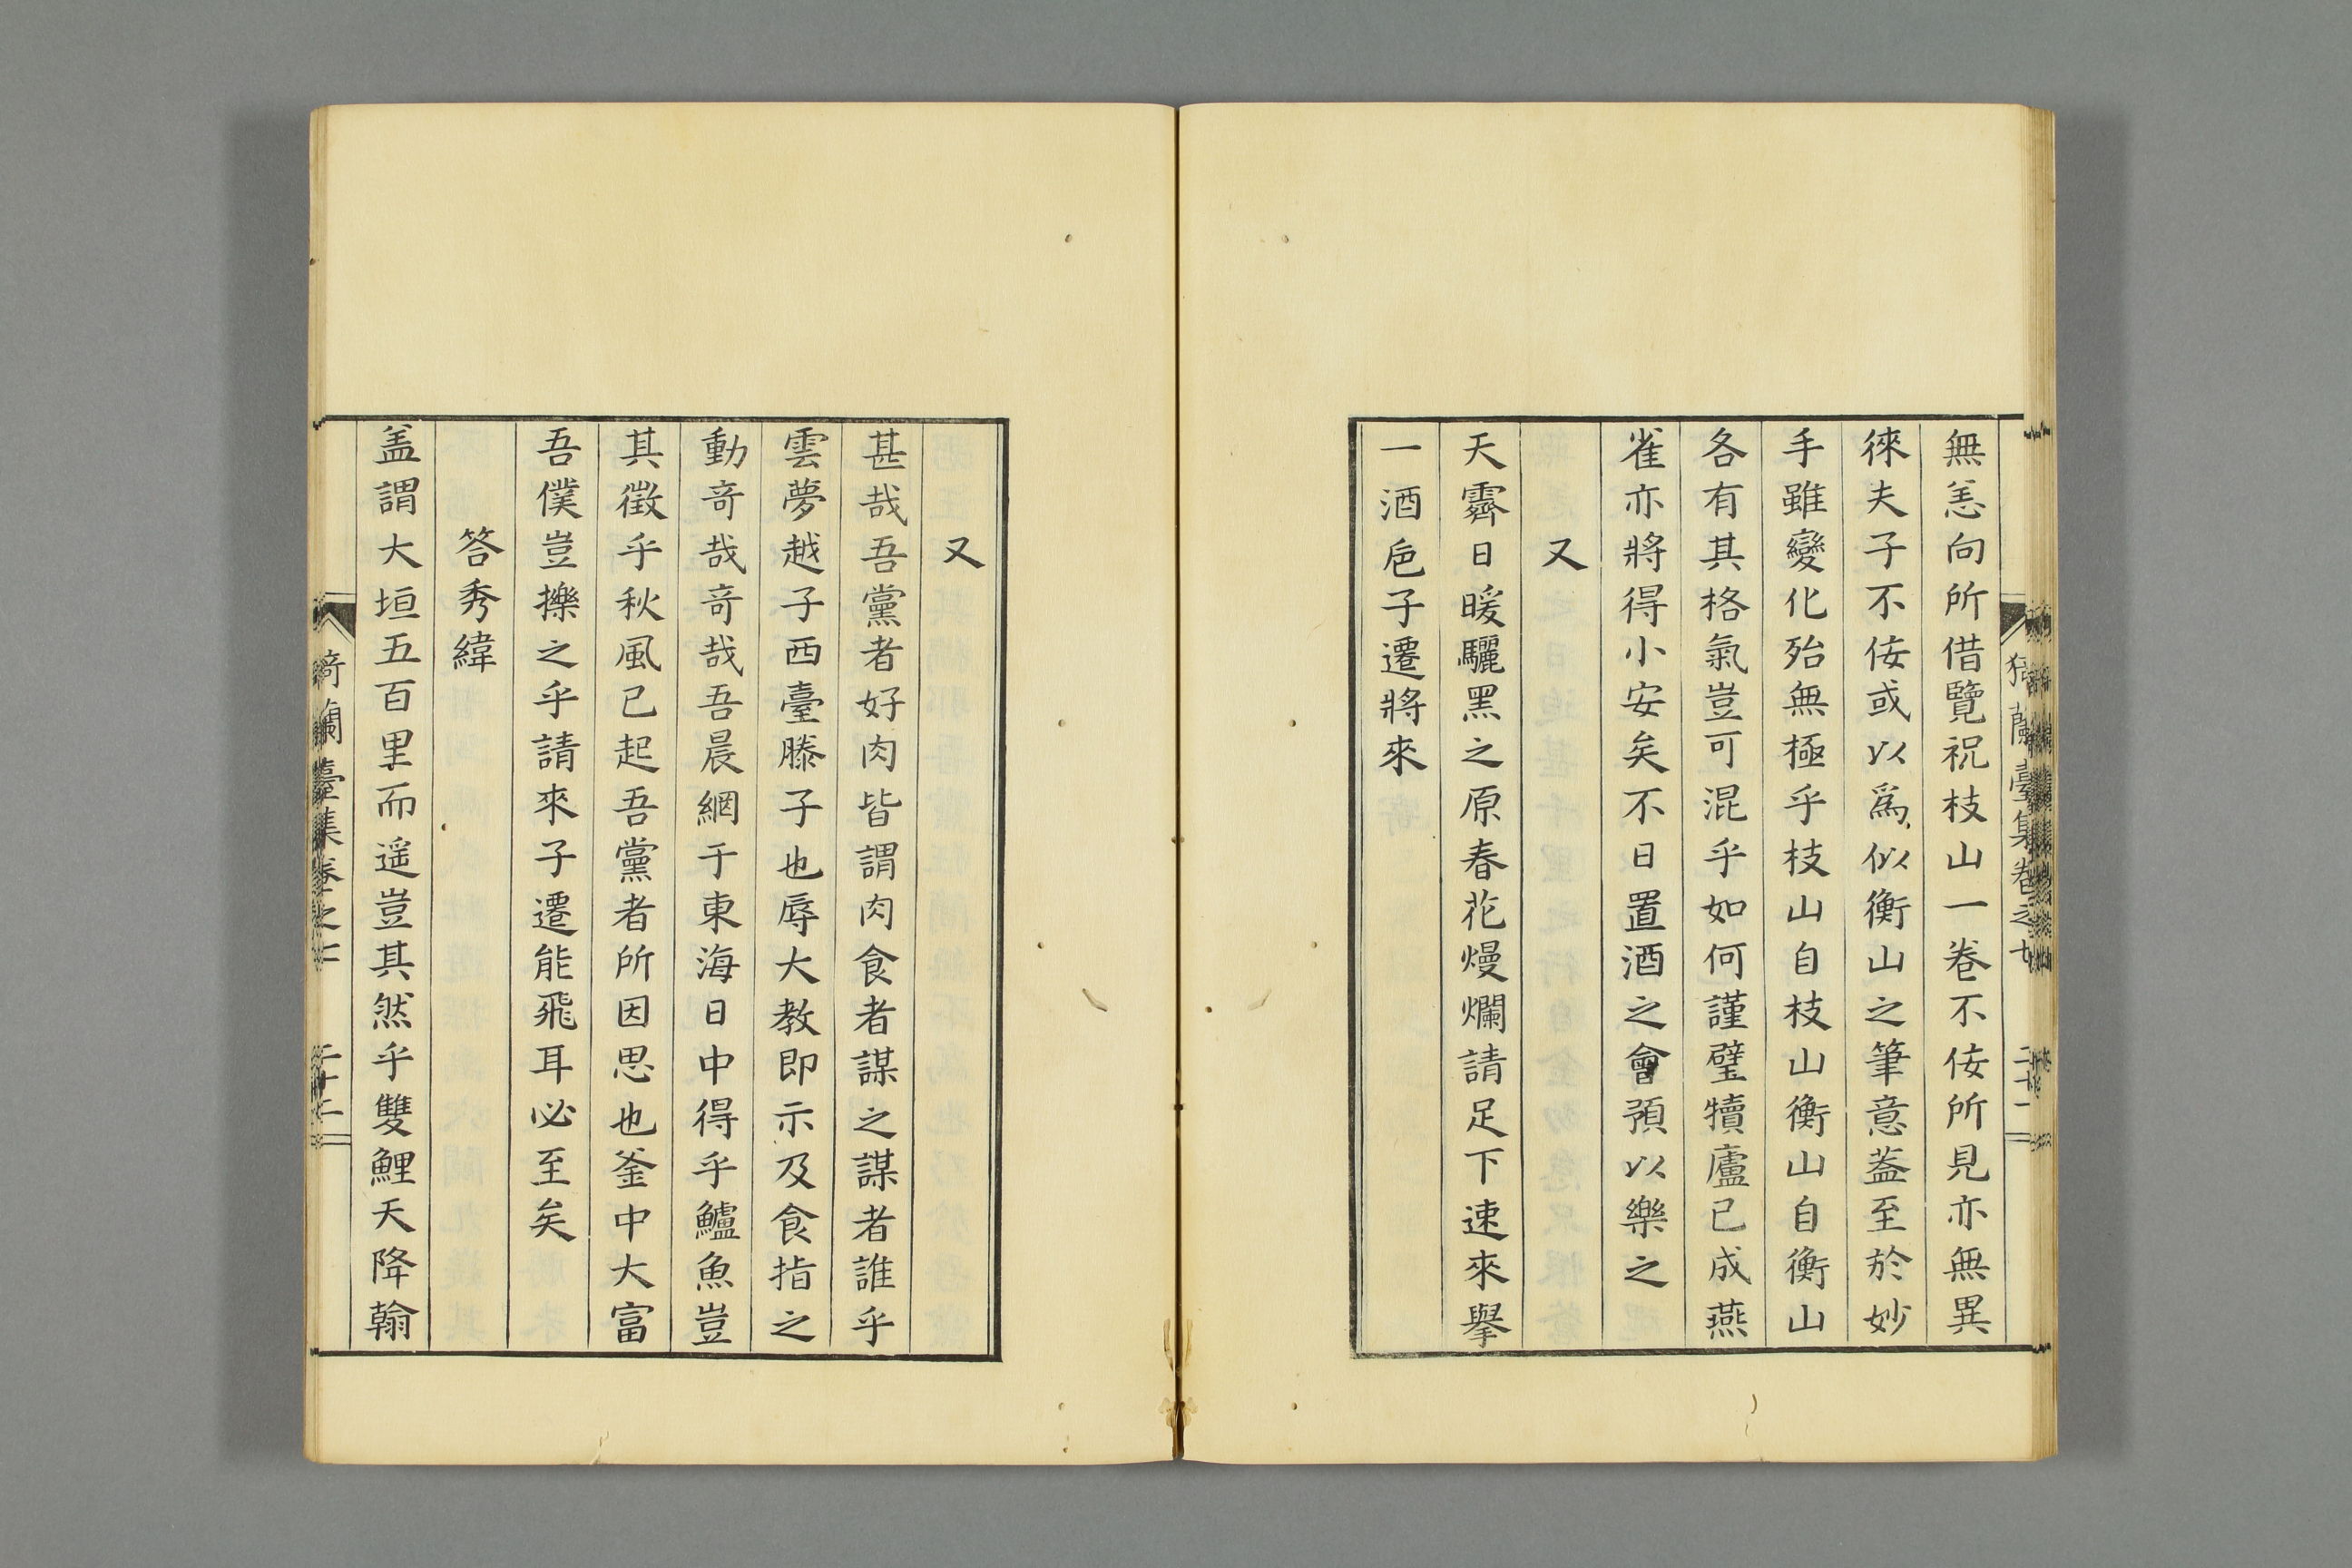 無恙向所借覽祝枝山一卷不佞所見亦無異
徠夫子不佞或以爲似衡山之筆意葢至於妙
手雖變化殆無極乎枝山自枝山衡山自衡山
各有其格氣豈可混乎如何謹璧犢廬已成燕
雀亦將得小安矣不日置酒之會預以樂之
又
天霽日暖驪黑之原春花熳爛請足下速來擧
一酒巵子遷將來
又
甚哉吾黨者好肉皆謂肉食者謀之謀者誰乎
雲夢越子西臺滕子也辱大教即示及食指之
動竒哉竒哉吾晨網于東海日中得乎鱸魚豈
其徵乎秋風已起吾黨者所因思也釜中大富
吾僕豈擽之乎請來子遷能飛耳必至矣
答秀緯
盖謂大垣五百里而遥豈其然乎雙鯉天降翰
蘭臺集卷之七
二十二